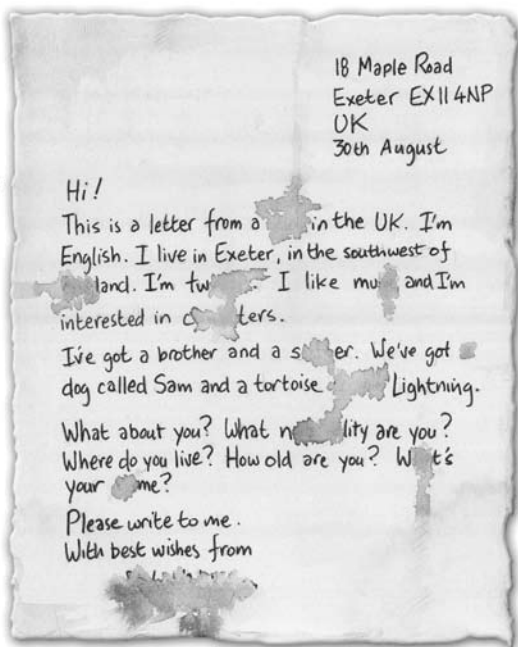 18 Maple Road
Exeter EX11 4NP
UK
30th August
Hi!
This is a letter from a in the UK. I'm
English. I live in Exeter, in the southwest of
I'm I like and I'm
interested in
I've got a brother and a We've got
dog called Sam and a tortoise Lightning.
What about you? What are you?
Where do you live? How old are you?
your
Please write to me.
With best wishes from